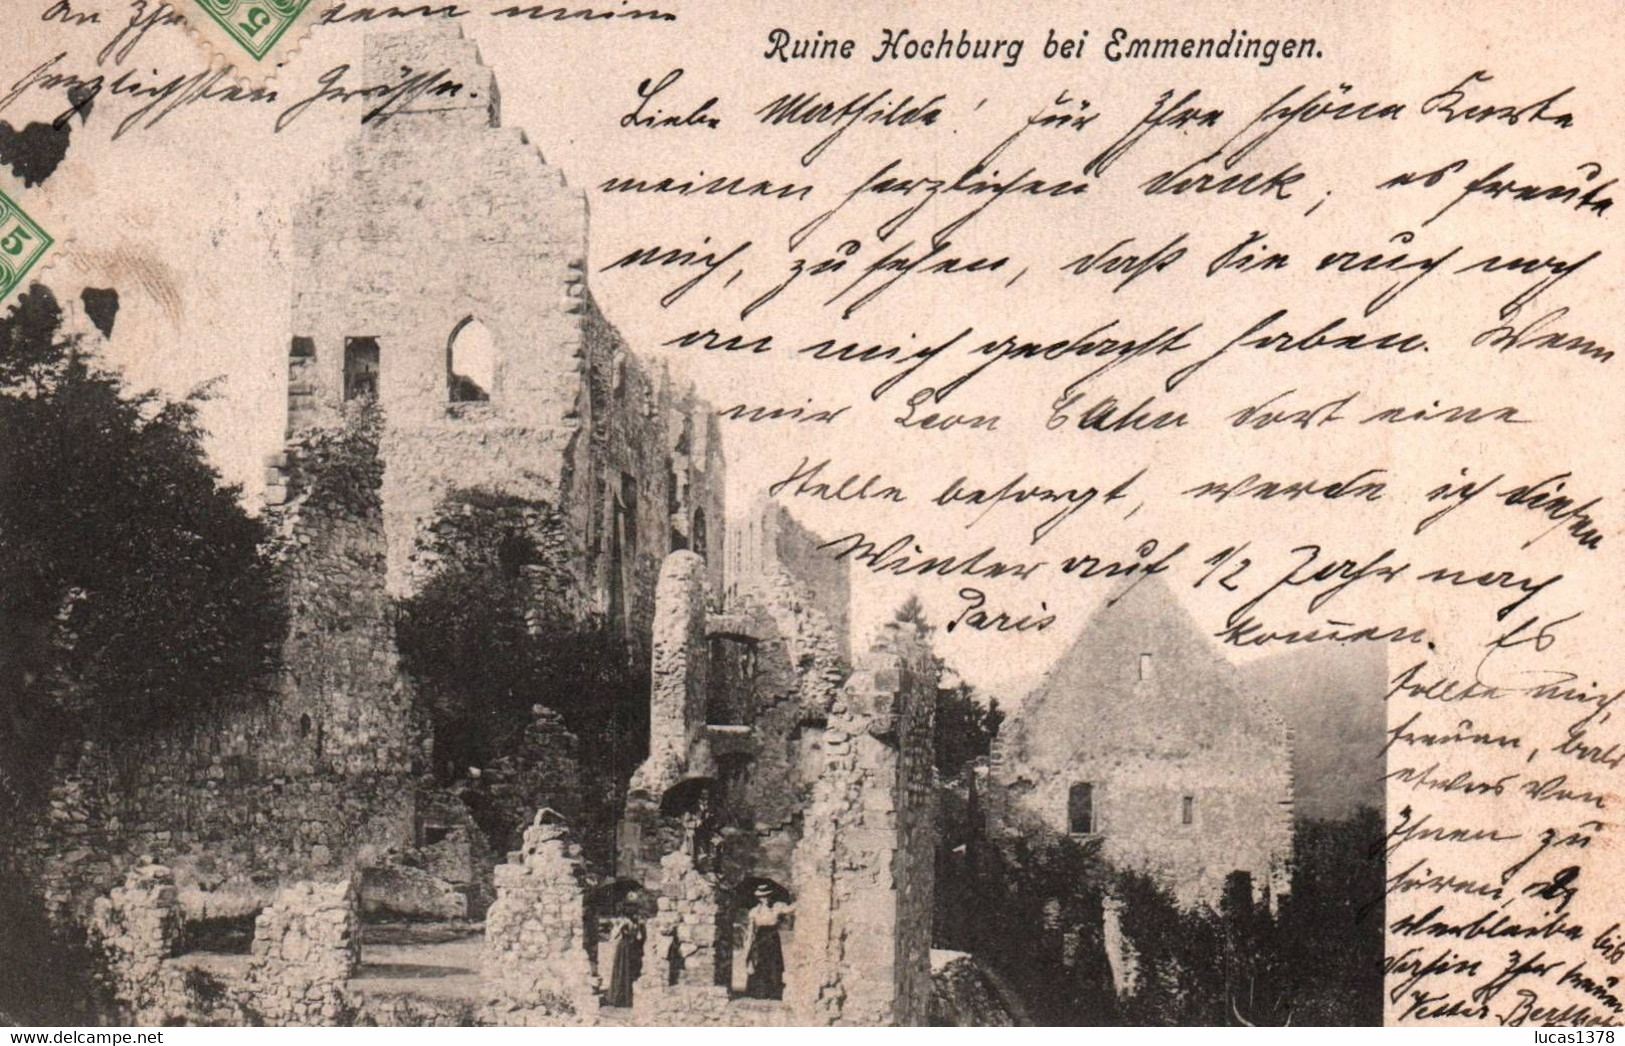 an Ihre                     meine
herzlichsten Grüsse.
5
5
Ruine Hochburg bei Emmendingen.
Liebe Mathilde! für Ihre schöne Karte
meinen herzlichen Dank, es freute
mich, zu sehen, daß Sie auch noch
an mich gedacht haben. Wenn
mir Leon dort eine
Stelle besorgt, werde ich diesen
Winter auf 1/2 Jahr nach
Paris kommen. Es
sollte mich
freuen, bald
etwas von
Ihnen zu
hören,
verbleibe bis
dahin Ihr treuer
www.delcampe.net
lucas1378